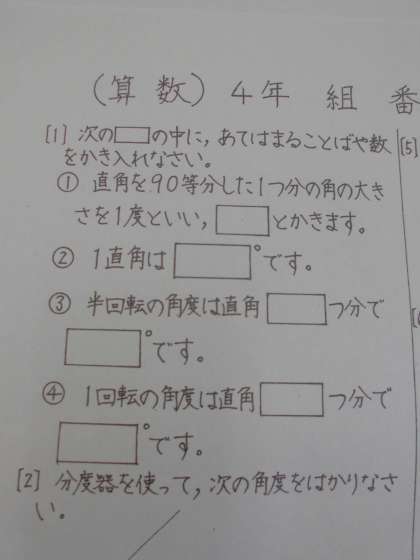 (算数) 4年 組 番
[1] 次の□の中に,あてはまることばや数
をかき入れなさい。
① 直角を90等分した1つ分の角の大き
さを1度といい,□とかきます。
② 1直角は□°です。
③ 半回転の角度は直角□つ分で
□°です。
④ 1回転の角度は直角□つ分で
□°です。
[2] 分度器を使って,次の角度をはかりなさ
い。
[5]